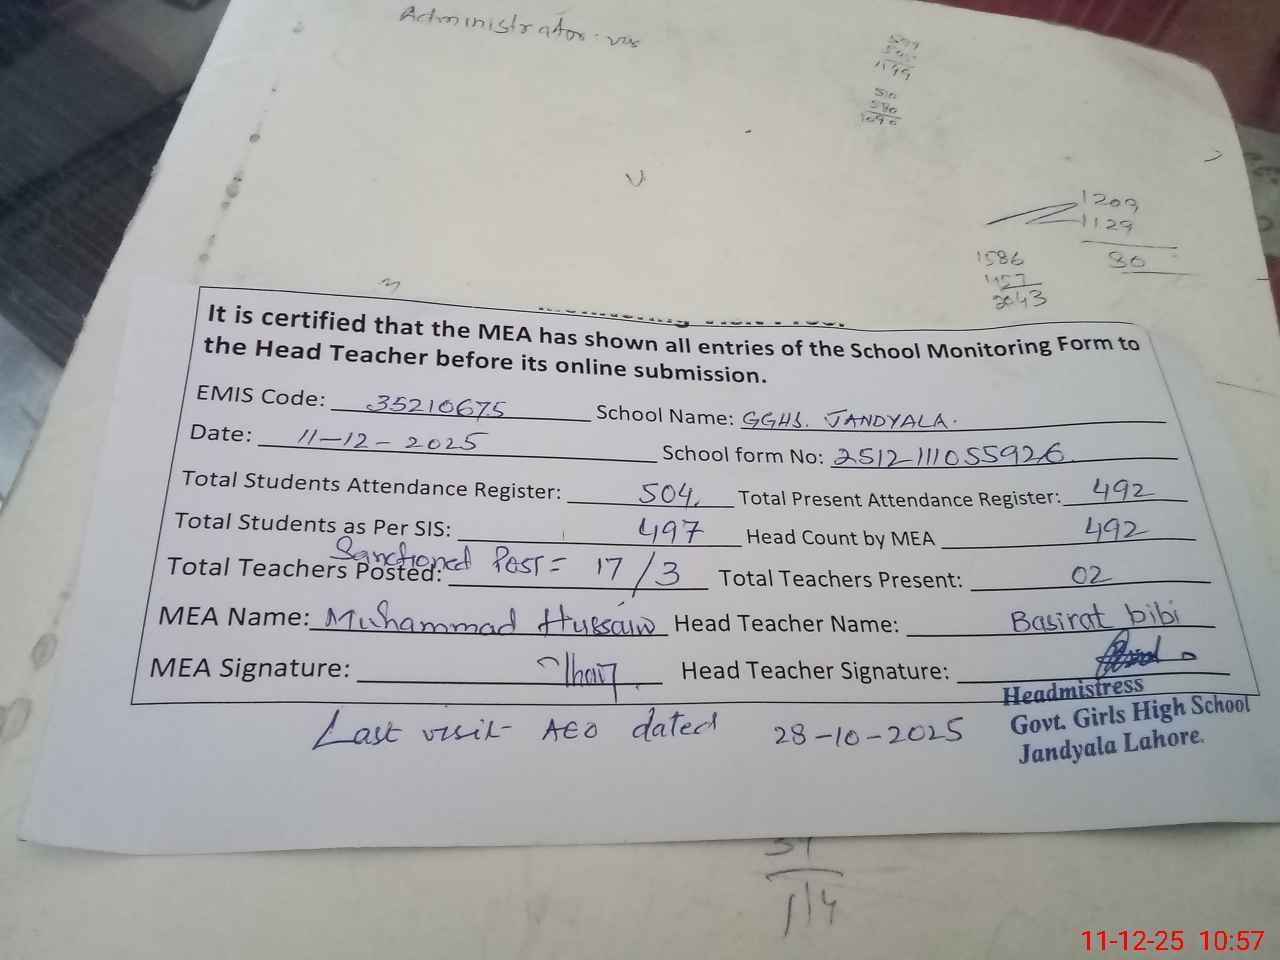 Administrator
1209
1129
80
1586
1457
2043
It is certified that the MEA has shown all entries of the School Monitoring Form to
the Head Teacher before its online submission.
EMIS Code: 35210675 School Name: GGHS. JANDYALA.
Date: 11-12-2025 School form No: 2512111055926
Total Students Attendance Register: 504. Total Present Attendance Register: 492
Total Students as Per SIS: 497 Head Count by MEA 492
Sanctioned Post = 17/3
Total Teachers Posted: Total Teachers Present: 02
MEA Name: Muhammad Hussain Head Teacher Name: Basirat bibi
MEA Signature: Head Teacher Signature:
Headmistress
Govt. Girls High School
Jandyala Lahore.
Last visit- AEO dated 28-10-2025
114
11-12-25 10:57